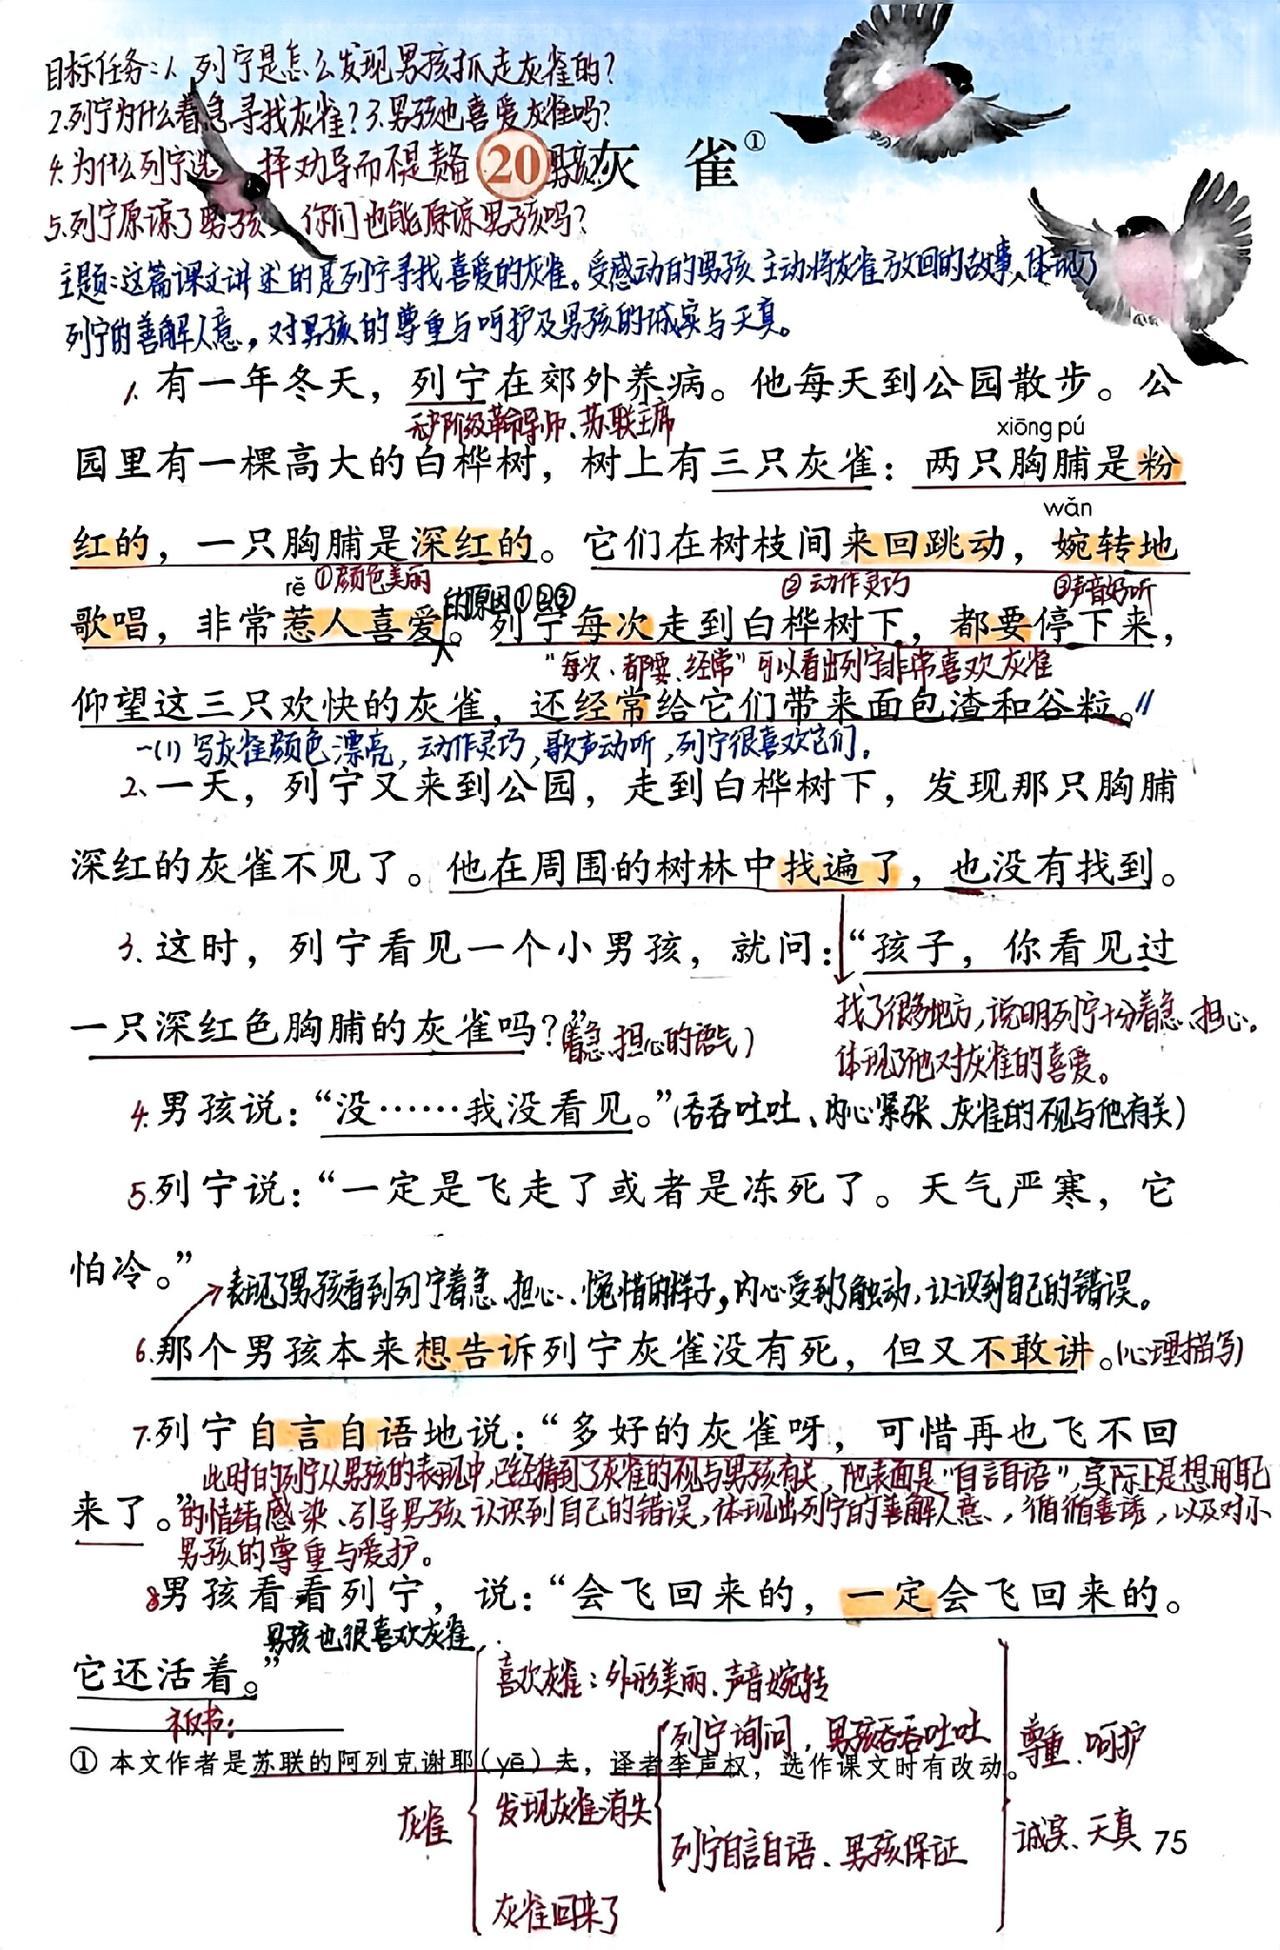 目标任务：1、列宁是怎么发现男孩抓走灰雀的？
2.列宁为什么着急寻找灰雀？3.男孩也喜爱灰雀吗？
4.为什么列宁选择劝导而不是责备男孩
20 灰 雀①
5.列宁原谅了男孩，你们也能原谅男孩吗？
主题：这篇课文讲述的是列宁寻找喜爱的灰雀。受感动的男孩主动将灰雀放回的故事，体现了
列宁的善解人意，对男孩的尊重与呵护及男孩的诚实与天真。
1.有一年冬天，列宁在郊外养病。他每天到公园散步。公
无产阶级革命导师、苏联主席
xiōng pú
园里有一棵高大的白桦树，树上有三只灰雀：两只胸脯是粉
wǎn
红的，一只胸脯是深红的。它们在树枝间来回跳动，婉转地
rě ①颜色美丽 ②动作灵巧 ③声音好听
的原因①②③
歌唱，非常惹人喜爱。列宁每次走到白桦树下，都要停下来，
“每次、都要、经常”可以看出列宁非常喜欢灰雀
仰望这三只欢快的灰雀，还经常给它们带来面包渣和谷粒。
一(1) 写灰雀颜色漂亮，动作灵巧，歌声动听，列宁很喜欢它们。
2、一天，列宁又来到公园，走到白桦树下，发现那只胸脯
深红的灰雀不见了。他在周围的树林中找遍了，也没有找到。
3.这时，列宁看见一个小男孩，就问：“孩子，你看见过
找了很多地方，说明列宁十分着急、担心。
一只深红色胸脯的灰雀吗？”(着急、担心的语气)
体现了他对灰雀的喜爱。
4.男孩说：“没……我没看见。”(吞吞吐吐、内心紧张、灰雀的不见与他有关)
5.列宁说：“一定是飞走了或者是冻死了。天气严寒，它
怕冷。”
表现了男孩看到列宁着急、担心、惋惜的样子，内心受到了触动，认识到自己的错误。
6.那个男孩本来想告诉列宁灰雀没有死，但又不敢讲。(心理描写)
7.列宁自言自语地说：“多好的灰雀呀，可惜再也飞不回
此时的列宁从男孩的表现中，已经猜到了灰雀的不见与男孩有关，他表面是“自言自语”，实际上是想用自己
来了。”的情绪感染、引导男孩认识到自己的错误，体现出列宁的善解人意、循循善诱，以及对小
男孩的尊重与爱护。
8男孩看看列宁，说：“会飞回来的，一定会飞回来的。
男孩也很喜欢灰雀
它还活着。”
板书：
喜欢灰雀：外形美丽、声音婉转
列宁询问，男孩吞吞吐吐
尊重、呵护
① 本文作者是苏联的阿列克谢耶（yē）夫，译者李声权，选作课文时有改动。
灰雀
发现灰雀消失
列宁自言自语、男孩保证
诚实、天真
75
灰雀回来了